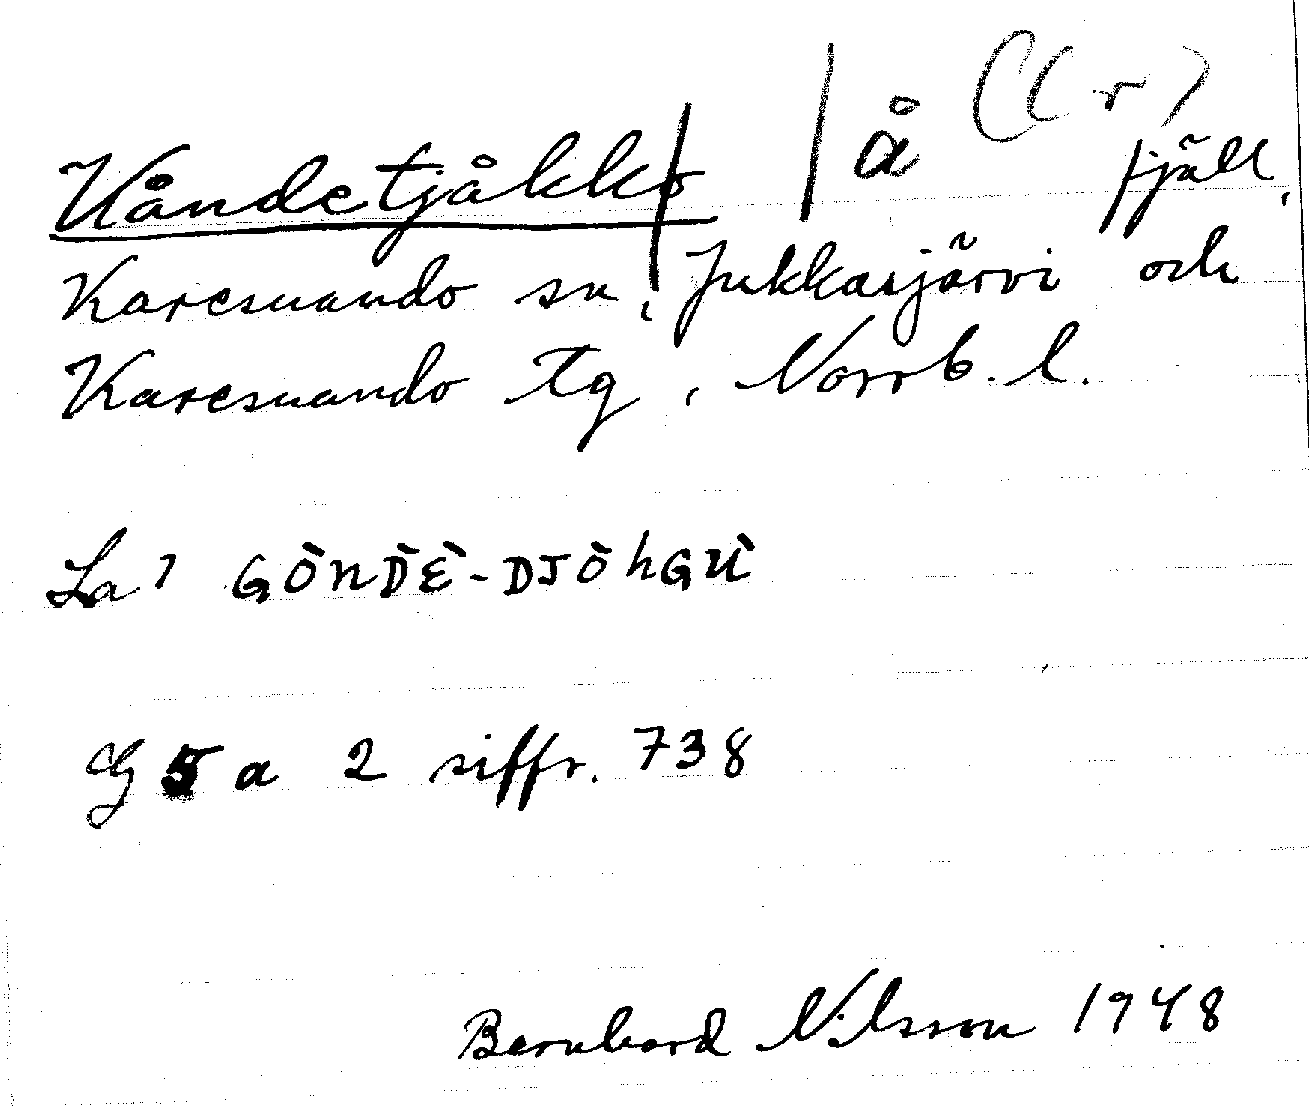 Kåndetjåkko å fjäll,
Karesuando sn, Jukkasjärvi och
Karesuando tg, Norrb. l.
La? GÒNDÈ-DJÒhGÙ
G 5 a 2 siffr. 738
Bernhard Nilsson 1948